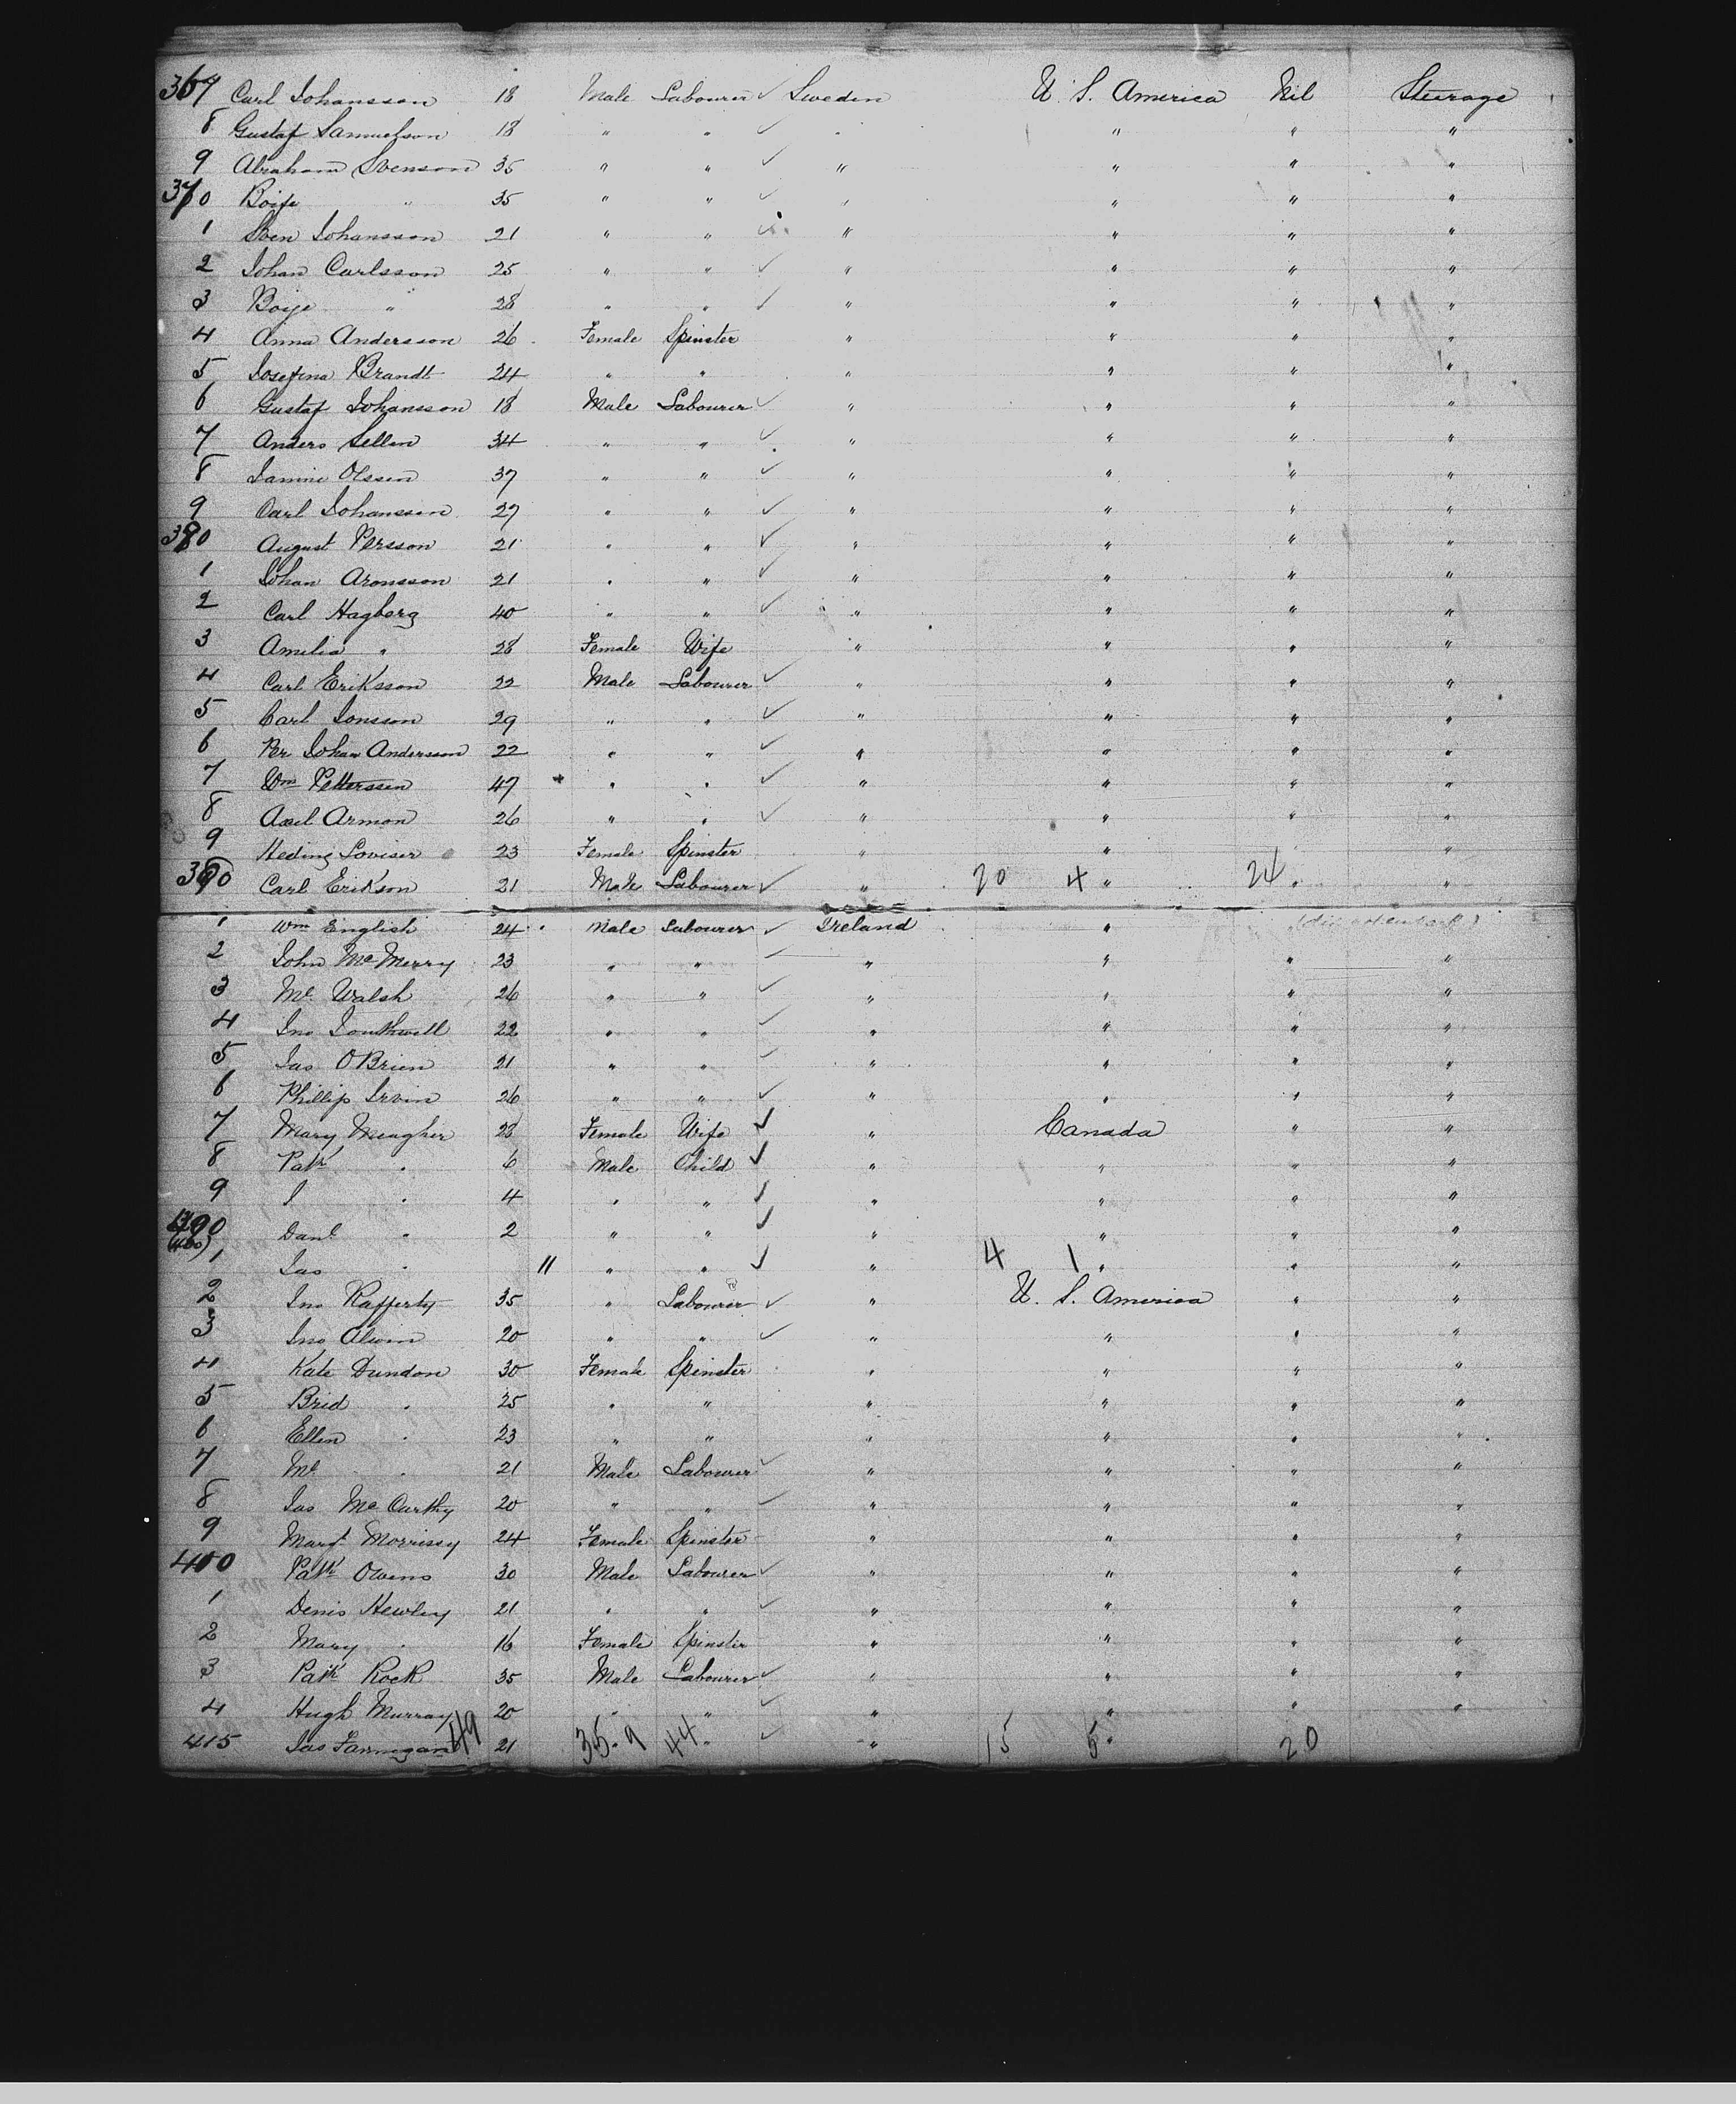 367 Carl Johansson 18 Male Labourer ✓ Sweden U. S. America Nil Steerage
8 Gustaf Samuelson 18 " " ✓ " " " "
9 Abraham Svenson 35 " " ✓ " " " "
370 Boije " 35 " " ✓ " " " "
1 Sven Johansson 21 " " ✓ " " " "
2 Johan Carlsson 25 " " ✓ " " " "
3 Boije " 28 " " ✓ " " " "
4 Anna Andersson 26 Female Spinster " " " "
5 Josefina Brandt 24 " " " " " "
6 Gustaf Johansson 18 Male Labourer ✓ " " " "
7 Anders Sellen 34 " " ✓ " " " "
8 Olssen 37 " " ✓ " " " "
9 Carl Johanssen 27 " " ✓ " " " "
380 August Persson 21 " " ✓ " " " "
1 Johan Aronsson 21 " " ✓ " " " "
2 Carl Hagborg 40 " " ✓ " " " "
3 Amelia " 28 Female Wife " " " "
4 Carl Eriksson 22 Male Labourer ✓ " " " "
5 Carl Jonsson 29 " " ✓ " " " "
6 Per Johan Andersson 22 " " ✓ " " " "
7 Wm Petterssen 47 " " ✓ " " " "
8 Axel Armon 26 " " ✓ " " " "
9 Heding Loviser 23 Female Spinster " " " "
390 Carl Erikson 21 Male Labourer ✓ " 20 4 " 24 " "
1 Wm English 24 Male Labourer ✓ Ireland " (did not embark)
2 John McMerry 23 " " ✓ " " " "
3 Ml Walsh 26 " " ✓ " " " "
4 Jno Southwell 22 " " ✓ " " " "
5 Jas OBrien 21 " " ✓ " " " "
6 Phillip Irvin 26 " " ✓ " " " "
7 Mary Meagher 28 Female Wife ✓ " Canada " "
8 Patk " 6 Male Child ✓ " " " "
9 J " 4 " " ✓ " " " "
390 (400) Danl " 2 " " ✓ " " " "
1 Jas " 11 " " ✓ " 4 1 " " "
2 Jno Rafferty 35 " Labourer ✓ " U. S. America " "
3 Jno Alwin 20 " " ✓ " " " "
4 Kate Dundon 30 Female Spinster " " " "
5 Brid " 25 " " " " " "
6 Ellen " 23 " " " " " "
7 Ml " 21 Male Labourer ✓ " " " "
8 Jas McCarthy 20 " " ✓ " " " "
9 Margt Morrissy 24 Female Spinster " " " "
410 Patk Owens 30 Male Labourer ✓ " " " "
1 Denis Hewley 21 " " ✓ " " " "
2 Mary " 16 Female Spinster " " " "
3 Patk Rock 35 Male Labourer ✓ " " " "
4 Hugh Murray 20 " " ✓ " " " "
415 Jas Fannegan 49 21 35. 9 44 " ✓ " 15 5 " 20